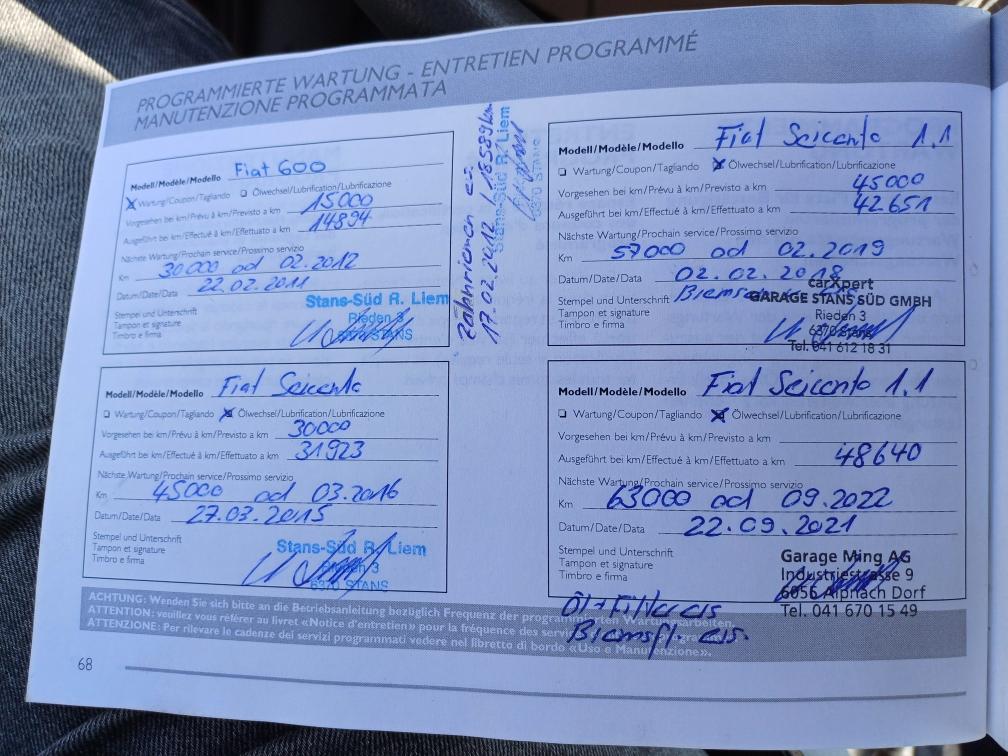 PROGRAMMIERTE WARTUNG - ENTRETIEN PROGRAMMÉ
MANUTENZIONE PROGRAMMATA
Modell/Modèle/Modello Fiat 600
X Wartung/Coupon/Tagliando ❏ Ölwechsel/Lubrification/Lubrificazione
Vorgesehen bei km/Prévu à km/Previsto a km 15000
Ausgeführt bei km/Effectué à km/Effettuato a km 14894
Nächste Wartung/Prochain service/Prossimo servizio
Km 30000 od 02.2012
Datum/Date/Data 22.02.2011
Stempel und Unterschrift
Tampon et signature
Timbro e firma
Stans-Süd R. Liem
Rieden 3
6370 STANS
Zahnriemen
17.02.2012 / 18589 km
Stans-Süd R. Liem
6370 STANS
Modell/Modèle/Modello Fiat Seicento 1.1
❏ Wartung/Coupon/Tagliando X Ölwechsel/Lubrification/Lubrificazione
Vorgesehen bei km/Prévu à km/Previsto a km 45000
Ausgeführt bei km/Effectué à km/Effettuato a km 42651
Nächste Wartung/Prochain service/Prossimo servizio
Km 57000 od 02.2019
Datum/Date/Data 02.02.2018
Stempel und Unterschrift
Tampon et signature
Timbro e firma
carXpert
GARAGE STANS SÜD GMBH
Rieden 3
6370 Stans
Tel. 041 612 18 31
Modell/Modèle/Modello Fiat Seicento
❏ Wartung/Coupon/Tagliando X Ölwechsel/Lubrification/Lubrificazione
Vorgesehen bei km/Prévu à km/Previsto a km 30000
Ausgeführt bei km/Effectué à km/Effettuato a km 31923
Nächste Wartung/Prochain service/Prossimo servizio
Km 45000 od 03.2016
Datum/Date/Data 27.03.2015
Stempel und Unterschrift
Tampon et signature
Timbro e firma
Stans-Süd R. Liem
Rieden 3
6370 STANS
Modell/Modèle/Modello Fiat Seicento 1.1
❏ Wartung/Coupon/Tagliando X Ölwechsel/Lubrification/Lubrificazione
Vorgesehen bei km/Prévu à km/Previsto a km
Ausgeführt bei km/Effectué à km/Effettuato a km 48640
Nächste Wartung/Prochain service/Prossimo servizio
Km 63000 od 09.2022
Datum/Date/Data 22.09.2021
Stempel und Unterschrift
Tampon et signature
Timbro e firma
Garage Ming AG
Industriestrasse 9
6056 Alpnach Dorf
Tel. 041 670 15 49
Öl + Filter
Bremsfl.
ACHTUNG: Wenden Sie sich bitte an die Betriebsanleitung bezüglich Frequenz der programmierten Wartungsarbeiten.
ATTENTION: veuillez vous référer au livret «Notice d'entretien» pour la fréquence des
ATTENZIONE: Per rilevare le cadenze dei servizi programmati vedere nel libretto di bordo «Uso e Manutenzione».
68